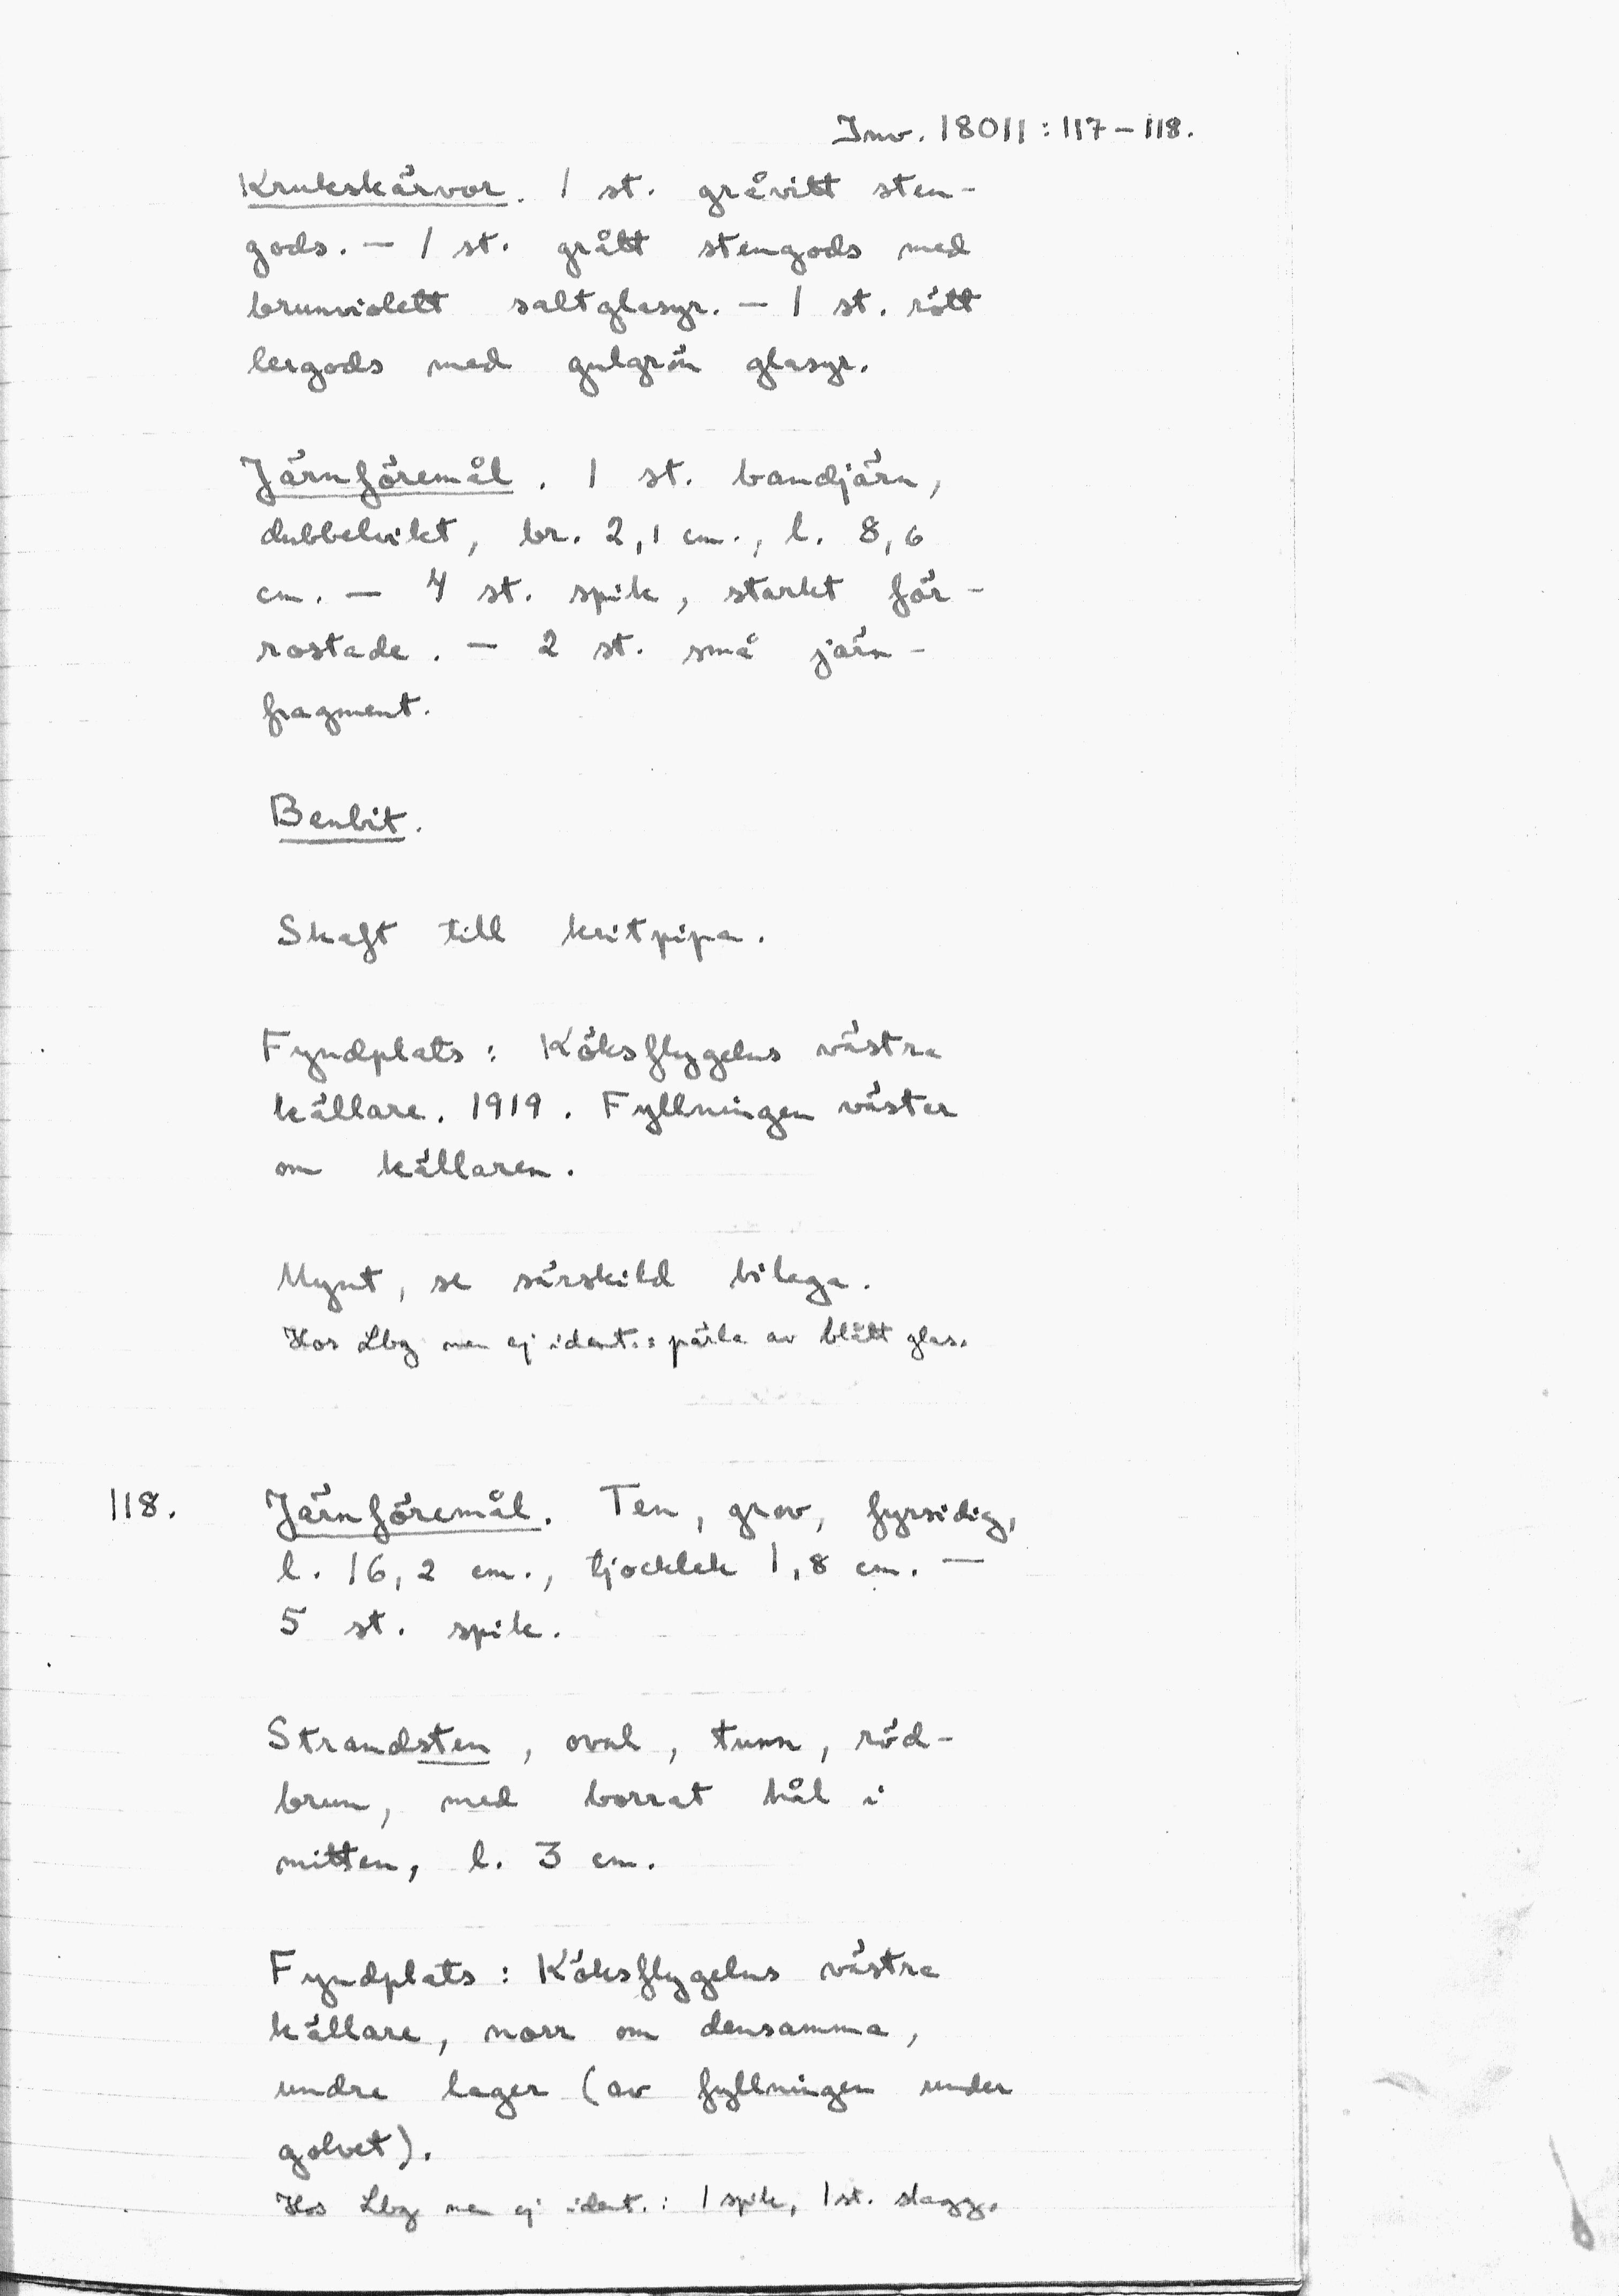 Inv. 18011:117-118.
Krukskärvor. 1 st. gråvitt sten-
gods. - 1 st. grått stengods med
brunviolett saltglasyr. - 1 st. rött
lergods med gulgrön glasyr.
Järnföremål. 1 st. bandjärn,
dubbelvikt, br. 2,1 cm., l. 8,6
cm. - 4 st. spik, starkt för-
rostade. - 2 st. små järn-
fragment.
Benbit.
Skaft till kritpipa.
Fyndplats: Köksflygelns västra
källare. 1919. Fyllningen väster
om källaren.
Mynt, se särskild bilaga.
Hos Lbg men ej ident.: pärla av blått glas.
118. Järnföremål. Ten, grov, fyrsidig,
l. 16,2 cm., tjocklek 1,8 cm. -
5 st. spik.
Strandsten, oval, tunn, röd-
brun, med borrat hål i
mitten, l. 3 cm.
Fyndplats: Köksflygelns västra
källare, norr om densamma,
undre lager (av fyllningen under
golvet).
Hos Lbg men ej ident.: 1 spik, 1 st. slagg.